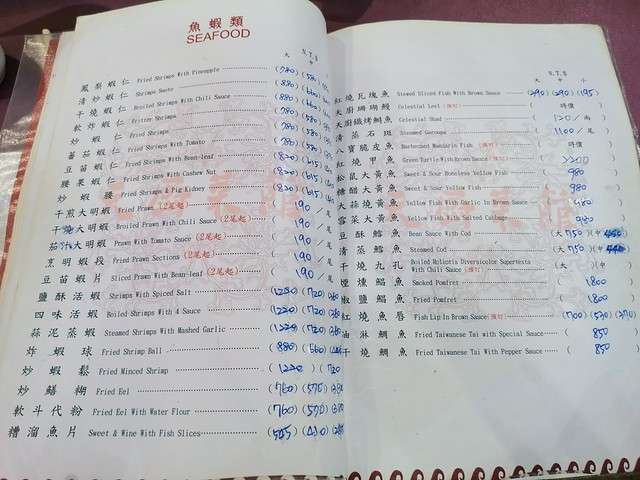 魚蝦類
SEAFOOD
N.T.$
大 中
鳳梨蝦仁 Fried Shrimps With Pineapple (780)(580)
清炒蝦仁 Fried Shrimps Saute (880)(660)
干燒蝦仁 Broiled Shrimps With Chili Sauce (880)(660)
軟炸蝦仁 Fritter Shrimps (780)(580)
炒蝦仁 Fried Shrimps (780)(580)
蕃茄蝦仁 Fried Shrimps With Tomato (780)(580)
豆苗蝦仁 Fried Shrimps With Bean-leaf (820)(615)
腰果蝦仁 Fried Shrimps With Cashew Nut (820)(615)
炒蝦腰 Fried Shrimps & Pig Kidney (820)(615)
干煎大明蝦 Fried Prawn (2尾起) 190/尾
干燒大明蝦 Broiled Prawn With Chili Sauce (2尾起) 190/尾
茄汁大明蝦 Prawn With Tomato Sauce (2尾起) 190/尾
烹明蝦段 Fried Prawn Sections (2尾起) 190/尾
豆苗蝦片 Sliced Prawn With Bean-leaf (2尾起) 190/尾
鹽酥活蝦 Shrimps With Spiced Salt (1220)(720)
四味活蝦 Boiled Shrimps With 4 Sauce (1220)(720)
蒜泥蒸蝦 Steamed Shrimps With Mashed Garlic (1220)(720)
炸蝦球 Fried Shrimp Ball (880)(660)
炒蝦鬆 Fried Minced Shrimp (1220)(720)
炒鱔糊 Fried Eel (760)(570)
軟斗代粉 Fried Eel With Water Flour (760)(570)
糟溜魚片 Sweet & Wine With Fish Slices (545)(410)
N.T.$
大 中 小
紅燒瓦塊魚 Stewed Sliced Fish With Brown Sauce (390)(290)(195)
天廚珊瑚鰻 Celestial Leel (預訂) (時價)
天廚鐵烤鯛魚 Celestial Shad (120/兩)
清蒸石斑 Steamed Garoupa (1100/尾)
八寶脆皮魚 Bastecdent Mandarin Fish (預訂) (時價)
紅燒甲魚 Green Turtle With Brown Sauce (預訂)
松鼠大黃魚 Sweet & Sour Boneless Yellow Fish (980)
糖醋大黃魚 Sweet & Sour Yellow Fish (980)
大蒜燒黃魚 Yellow Fish With Garlic In Brown Sauce (980)
雪菜大黃魚 Yellow Fish With Salted Cabbage (980)
豆酥鱈魚 Bean Sauce With Cod (大750)(中
清蒸鱈魚 Steamed Cod (大750)(中
干燒九孔 Boiled Haliotis Diversicolor Supertexta With Chili Sauce (預訂) (大)(中
煙燻鯧魚 Smoked Pomfret (1800)
椒鹽鯧魚 Fried Pomfret (1800)
紅燒魚唇 Fish Lip In Brown Sauce (預訂) (700)(530)(270)
油淋鯛魚 Fried Taiwanese Tai with Special Sauce (850)
干燒鯛魚 Fried Taiwanese Tai With Pepper Sauce (850)